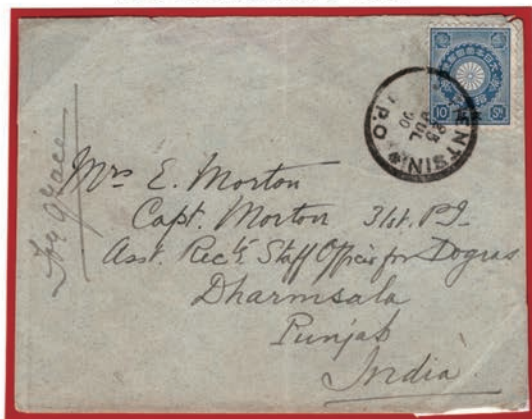 10 Sn.
TIENTSIN
25
JUL
00
I.P.O
For Grace
Mrs E. Morton
Capt. Morton 31st. P.I.
Asst. Rec'g Staff Officer for Dogras
Dharmsala
Punjab
India